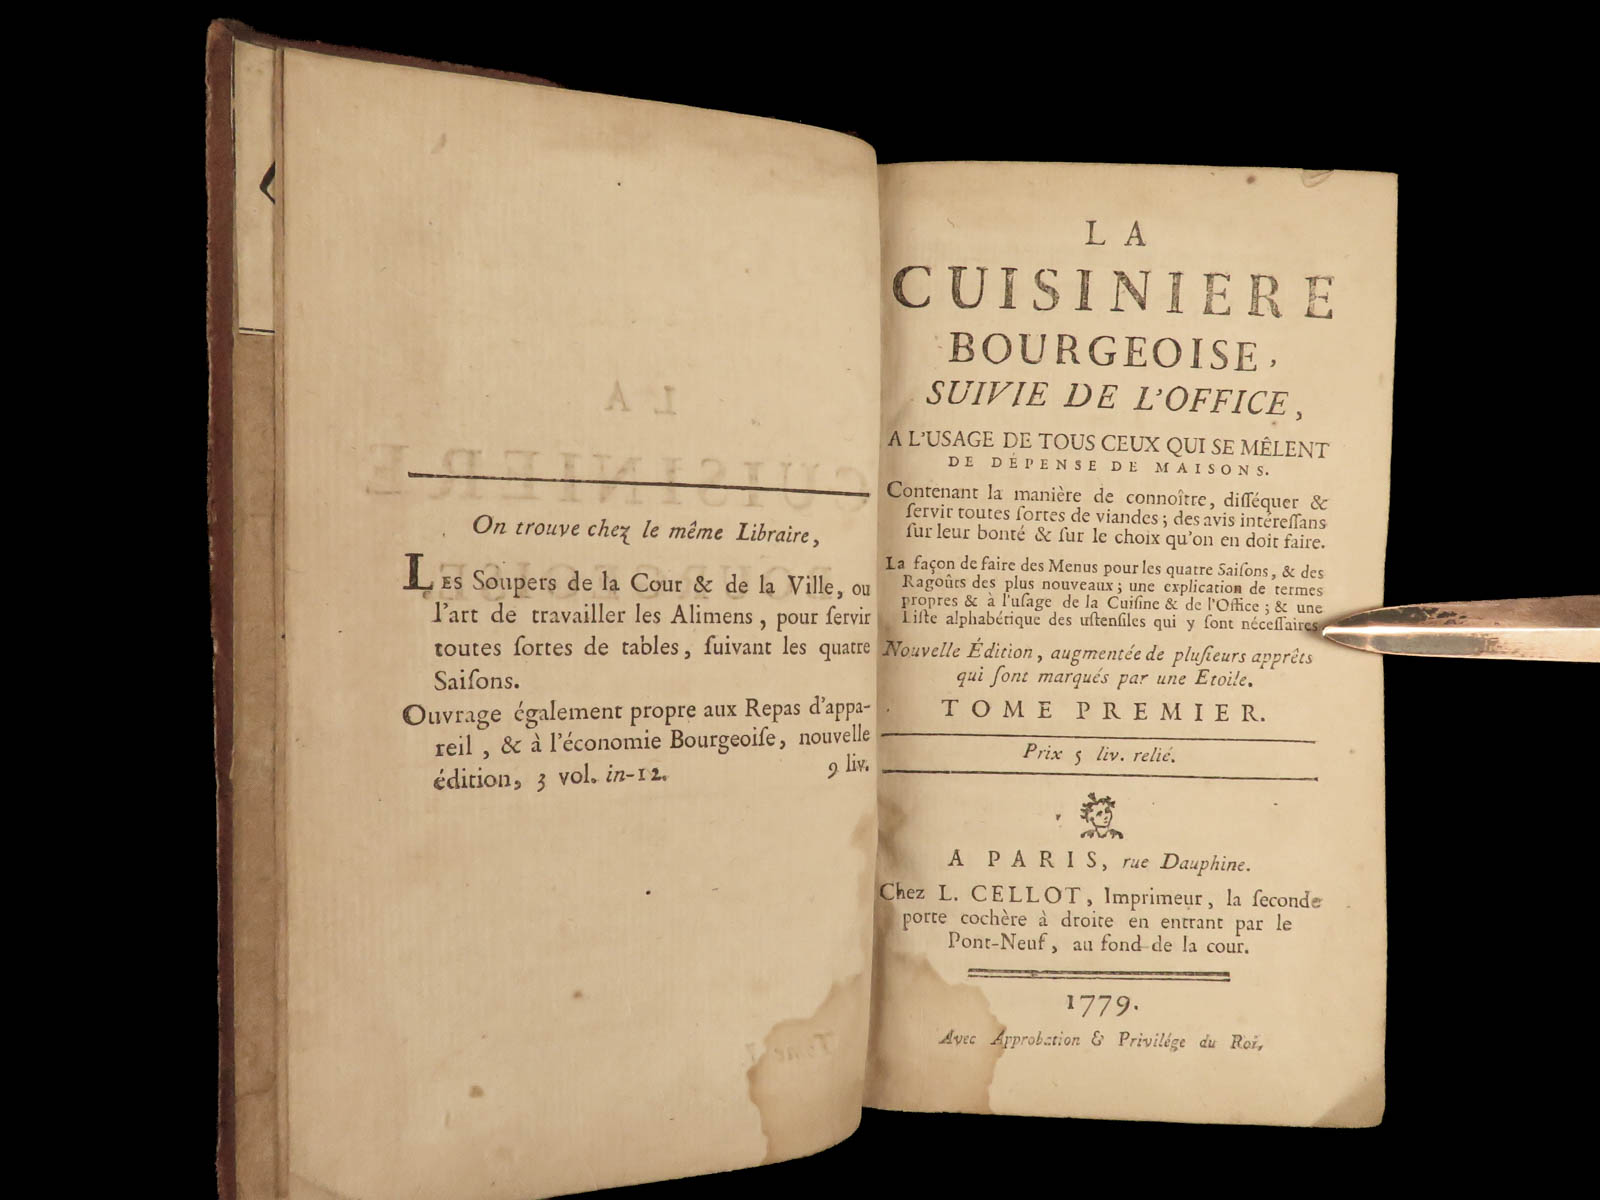 On trouve chez le même Libraire,
LES Soupers de la Cour & de la Ville, ou
l'art de travailler les Alimens, pour ſervir
toutes ſortes de tables, ſuivant les quatre
Saiſons.
Ouvrage également propre aux Repas d'appa-
reil, & à l'économie Bourgeoiſe, nouvelle
édition, 3 vol. in-12. 9 liv.
LA
CUISINIERE
BOURGEOISE,
SUIVIE DE L'OFFICE,
A L'USAGE DE TOUS CEUX QUI SE MÊLENT
DE DÉPENSE DE MAISONS.
Contenant la manière de connoître, diſſéquer &
ſervir toutes ſortes de viandes; des avis intéreſſans
ſur leur bonté & ſur le choix qu'on en doit faire.
La façon de faire des Menus pour les quatre Saiſons, & des
Ragoûts des plus nouveaux; une explication de termes
propres & à l'uſage de la Cuiſine & de l'Office; & une
Liſte alphabétique des uſtenſiles qui y ſont néceſſaires.
Nouvelle Édition, augmentée de pluſieurs apprêts
qui ſont marqués par une Etoile.
TOME PREMIER.
Prix 5 liv. relié.
A PARIS, rue Dauphine.
Chez L. CELLOT, Imprimeur, la ſeconde
porte cochère à droite en entrant par le
Pont-Neuf, au fond de la cour.
1779.
Avec Approbation & Privilége du Roi.